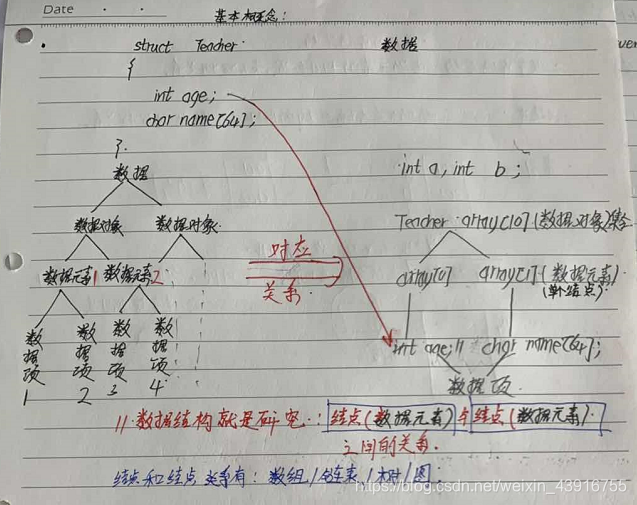 Date
基本概念:
struct Teacher 数据
{
int age;
char name[64];
}.
数据
int a, int b ;
数据对象 数据对象
Teacher array[10] (数据对象)集合
对应
关系
数据元素1 数据元素2
array[0] array[1] (数据元素)
数据项1 数据项2 数据项3 数据项4
int age; // char name[64];
数据项
// 数据结构就是研究: 结点(数据元素)与结点(数据元素)
之间的关系.
结点和结点关系有: 数组/链表/树/图
https://blog.csdn.net/weixin_43916755